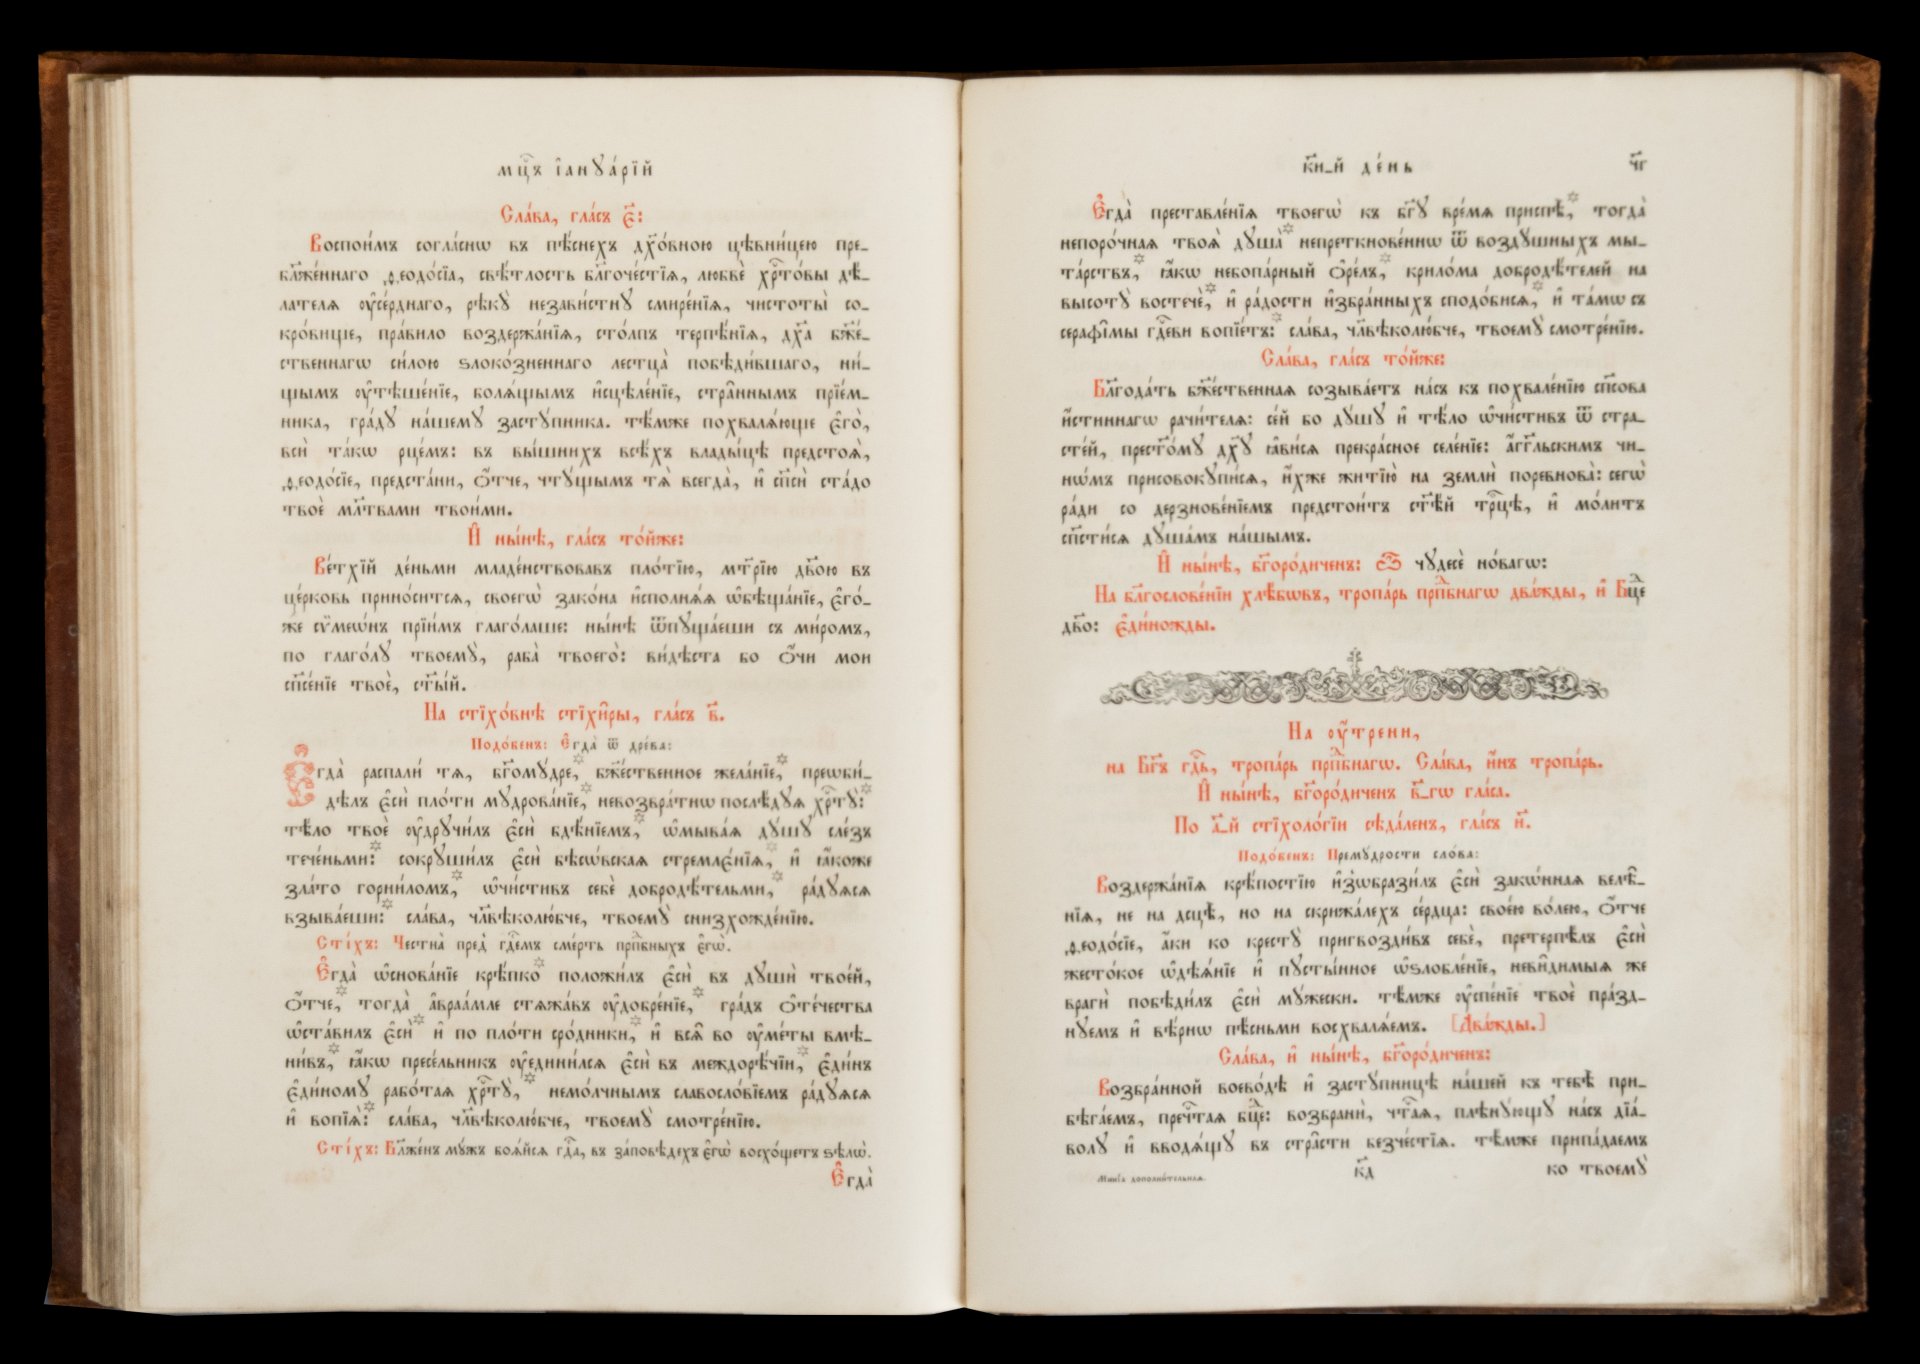 мцⷭ҇ъ і҆аннуа́рїй
Сла́ва, гла́съ є҃:
Воспои́мъ согла́снѡ въ пѣ́снехъ дх҃о́вною цѣвни́цею пре-
бл҃же́ннаго ѳеодо́сїа, свѣ́тлость бл҃гоче́стїѧ, любвѐ хрⷭ҇то́вы дѣ́-
лателѧ ᲂу҆се́рднаго, рѣкꙋ̀ незави́стнꙋ смире́нїѧ, чистоты̀ со-
кро́вище, пра́вило воздержа́нїѧ, сто́лпъ терпѣ́нїѧ, дх҃а бж҃е́-
ственнагѡ си́лою ѕлоко́зненнаго лестца̀ побѣди́вшаго, ни́-
щымъ ᲂу҆тѣше́нїе, болѧ́щымъ и҆сцѣле́нїе, стра̑ннымъ прїе́м-
ника, гра́дꙋ на́шемꙋ застꙋ́пника. тѣ́мже похвалѧ́юще є҆го̀,
всѝ та́кѡ рце́мъ: въ вы́шнихъ всѣ́хъ влады́цѣ предстоѧ̀,
ѳеодо́сїе, предста́ни, ѻ҆́тче, чтꙋ́щымъ тѧ̀ всегда̀, и҆ сп҃сѝ ста́до
твоѐ мл҃твами твои́ми.
И҆ ны́нѣ, гла́съ то́йже:
Ве́тхїй де́ньми младе́нствовавъ пло́тїю, мт҃рїю дв҃ою въ
це́рковь прино́ситсѧ, своегѡ̀ зако́на и҆сполнѧ́ѧ ѡ҆бѣща́нїе, є҆го́-
же сѷмеѡ́нъ прїи́мъ глаго́лаше: ны́нѣ ѿпꙋща́еши съ ми́ромъ,
по глаго́лꙋ твоемꙋ̀, раба̀ твоего̀: ви́дѣста бо ѻ҆́чи мои
сп҃се́нїе твоѐ, ст҃ы́й.
На стїхо́внѣ стїхи̑ры, гла́съ в҃.
Подо́бенъ: Є҆гда̀ ѿ дре́ва:
Є҆гда̀ распали́ тѧ, бг҃омꙋ́дре,* бж҃е́ственное жела́нїе,* преѡби́-
дѣлъ є҆сѝ пло́ти мꙋдрова́нїе,* невозвра́тнѡ послѣ́дꙋѧ хрⷭ҇тꙋ̀:*
тѣ́ло твоѐ ᲂу҆дрꙋчи́лъ є҆сѝ бдѣ́нїемъ,* ѡ҆мыва́ѧ дꙋ́шꙋ сле́зъ
тече́ньми:* сокрꙋши́лъ є҆сѝ бѣсѡ́вскаѧ стремлє́нїѧ,* и҆ ꙗ҆́коже
зла́то горни́ломъ,* ѡ҆чи́стивъ себѐ добродѣ́тельми,* ра́дꙋѧсѧ
взыва́еши:* сла́ва, чл҃вѣколю́бче, твоемꙋ̀ снизхожде́нїю.
Сті́хъ: Честна̀ пред̾ гдⷭ҇емъ сме́рть прпⷣбныхъ є҆гѡ̀.
Є҆гда̀ ѡ҆снова́нїе крѣ́пко* положи́лъ є҆сѝ въ дꙋшѝ твое́й,
ѻ҆́тче,* тогда̀ а҆враа́мле стѧжа́въ ᲂу҆добре́нїе,* гра́дъ ѻ҆те́чества
ѡ҆ста́вилъ є҆сѝ* и҆ по пло́ти сро́дники,* и҆ всѧ̑ во ᲂу҆ме́ты вмѣ-
ни́въ,* ꙗ҆́кѡ пресе́льникъ ᲂу҆едини́лсѧ є҆сѝ въ междорѣ́чїи,* є҆ди́нъ
є҆ди́номꙋ рабо́таѧ хрⷭ҇тꙋ̀,* немо́лчнымъ славосло́вїемъ ра́дꙋѧсѧ
и҆ вопїѧ̀:* сла́ва, чл҃вѣколю́бче, твоемꙋ̀ смотре́нїю.
Сті́хъ: Бл҃же́нъ мꙋ́жъ боѧ́йсѧ гдⷭ҇а, въ за́повѣдехъ є҆гѡ̀ восхо́щетъ ѕѣлѡ̀.
Є҆гда̀
к҃и-й де́нь
ч҃г
Є҆гда̀ преставле́нїѧ твоегѡ̀ къ бг҃ꙋ вре́мѧ приспѣ̀,* тогда̀
непоро́чнаѧ твоѧ̀ дꙋша̀* непреткнове́ннѡ ѿ воздꙋ́шныхъ мы-
та́рствъ,* ꙗ҆́кѡ небопа́рный ѻ҆ре́лъ,* крило́ма добродѣ́телей на
высотꙋ̀ востечѐ,* и҆ ра́дости и҆збра́нныхъ сподо́бисѧ,* и҆ та́мѡ съ
серафі̑мы гдⷭ҇еви вопїе́тъ:* сла́ва, чл҃вѣколю́бче, твоемꙋ̀ смотре́нїю.
Сла́ва, гла́съ то́йже:
Бл҃года́ть бж҃е́ственнаѧ созыва́етъ на́съ къ похвале́нїю сп҃сова
и҆́стиннагѡ рачи́телѧ: се́й бо дꙋ́шꙋ и҆ тѣ́ло ѡ҆чи́стивъ ѿ стра-
сте́й, прест҃о́мꙋ дх҃ꙋ ꙗ҆ви́сѧ прекра́сное селе́нїе: а҆́гг҃льскимъ чи-
нѡ́мъ присовокꙋпи́сѧ, и҆́хже житїю̀ на землѝ поревнова̀: сегѡ̀
ра́ди со дерзнове́нїемъ предстои́тъ ст҃ѣ́й трⷪ҇цѣ, и҆ мо́литъ
сп҃сти́сѧ дꙋша́мъ на́шымъ.
И҆ ны́нѣ, бг҃оро́диченъ: Ѽ чꙋдесѐ но́вагѡ:
На бл҃гослове́нїи хлѣ́бѡвъ, тропа́рь прпⷣбнагѡ два́жды, и҆ Бцⷣе
дв҃о: є҆ди́ножды.
На ᲂу҆́трени,
на Бг҃ъ гдⷭ҇ь, тропа́рь прпⷣбнагѡ. Сла́ва, и҆́нъ тропа́рь.
И҆ ны́нѣ, бг҃оро́диченъ в҃-гѡ гла́са.
По а҃-й стїхоло́гїи сѣда́ленъ, гла́съ и҃.
Подо́бенъ: Премꙋ́дрости сло́ва:
Воздержа́нїѧ крѣ́постїю и҆з̾ѡбрази́лъ є҆сѝ закѡ́ннаѧ велѣ̑-
нїѧ, не на дсцѣ̀, но на скрижа́лехъ се́рдца: свое́ю во́лею, ѻ҆́тче
ѳеодо́сїе, а҆́ки ко крестꙋ̀ пригвозди́въ себѐ, претерпѣ́лъ є҆сѝ
жесто́кое ѡ҆дѣѧ́нїе и҆ пꙋсты́нное ѡ҆ѕлобле́нїе, неви̑димыѧ же
врагѝ побѣди́лъ є҆сѝ мꙋ́жески. тѣ́мже ᲂу҆спе́нїе твоѐ пра́зд-
нꙋемъ и҆ вѣ́рнѡ пѣ́сньми восхвалѧ́емъ. [Два́жды.]
Сла́ва, и҆ ны́нѣ, бг҃оро́диченъ:
Возбра́нной воево́дѣ и҆ застꙋ́пницѣ на́шей къ тебѣ̀ при-
бѣга́емъ, пречⷭ҇таѧ бцⷣе: возбранѝ, чⷭ҇таѧ, плѣнꙋ́ющꙋ на́съ дїа́-
волꙋ и҆ вводѧ́щꙋ въ стра̑сти безче́стїѧ. тѣ́мже припа́даемъ
Мині́а дополни́тельнаѧ.
к҃д
ко твоемꙋ̀